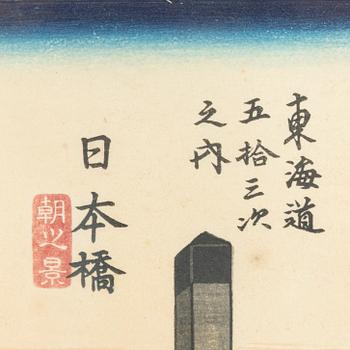 東海道
五拾三次
之内
日本橋
朝之景